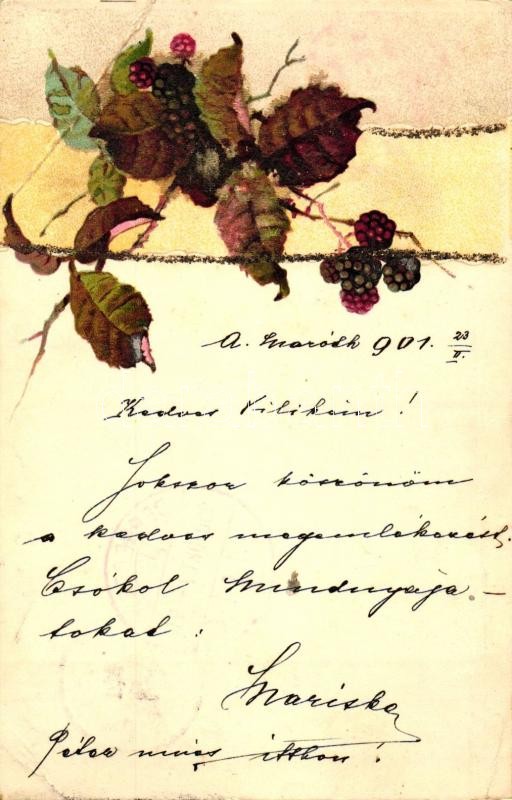 A. Maróth 901. 23/II.
Kedves Vilikém!
Sokszor köszönöm
a kedves megemlékezést,
Csókol Mindnyája-
tokat:
Mariska
Péter nincs itthon!